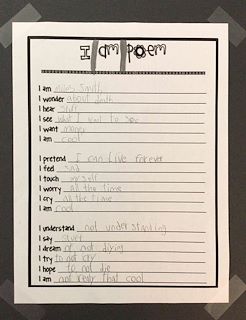 I am poem
I am miles smith
I wonder about death
I hear stuff
I see what I want to see
I want money
I am cool
I pretend I can live forever
I feel sad
I touch my self
I worry all the time
I cry all the time
I am cool
I understand not understanding
I say stuff
I dream of not diying
I try to not cry
I hope to not die
I am not really that cool